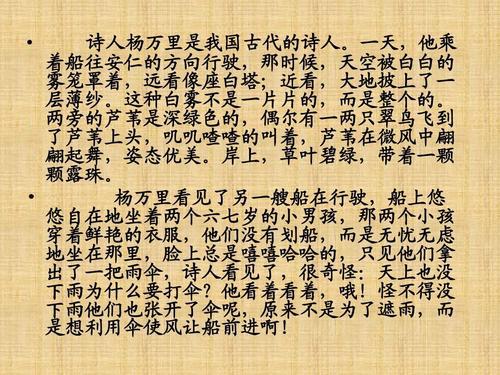 • 诗人杨万里是我国古代的诗人。一天，他乘
着船往安仁的方向行驶，那时候，天空被白白的
雾笼罩着，远看像座白塔；近看，大地披上了一
层薄纱。这种白雾不是一片片的，而是整个的。
两旁的芦苇是深绿色的，偶尔有一两只翠鸟飞到
了芦苇上头，叽叽喳喳的叫着，芦苇在微风中翩
翩起舞，姿态优美。岸上，草叶碧绿，带着一颗
颗露珠。
• 杨万里看见了另一艘船在行驶，船上悠
悠自在地坐着两个六七岁的小男孩，那两个小孩
穿着鲜艳的衣服，他们没有划船，而是无忧无虑
地坐在那里，脸上总是嘻嘻哈哈的，只见他们拿
出了一把雨伞，诗人看见了，很奇怪：天上也没
下雨为什么要打伞？他看着看着，哦！怪不得没
下雨他们也张开了伞呢，原来不是为了遮雨，而
是想利用伞使风让船前进啊！